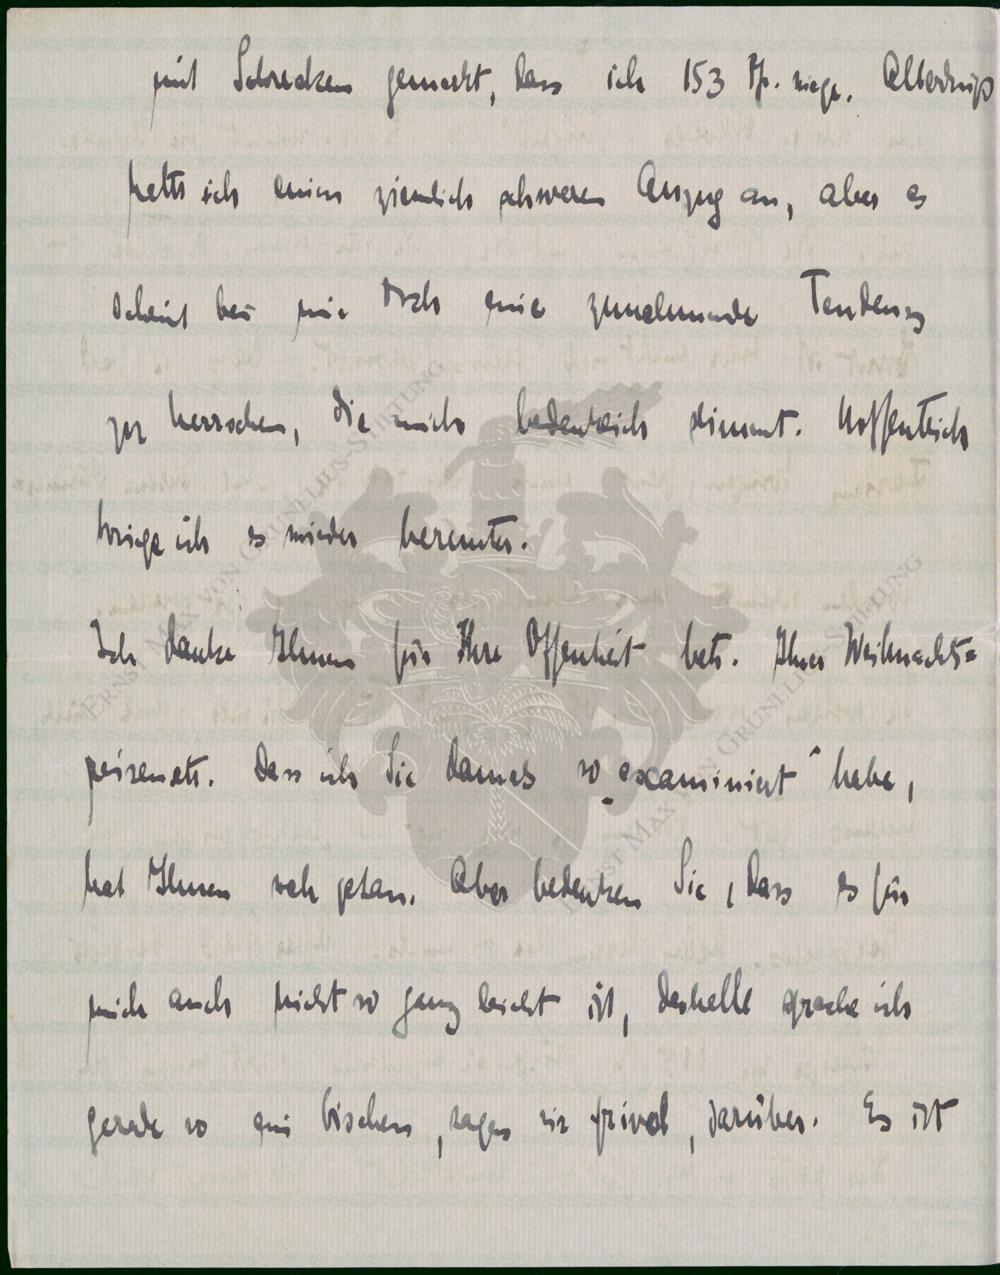 mit Schrecken gemerkt, dass ich 153 Pf. wiege. Allerdings
hatte ich einen ziemlich schweren Anzug an, aber es
scheint bei mir doch eine zunehmende Tendenz
zu herrschen, die mich bedenklich stimmt. Hoffentlich
kriege ich es wieder herunter.
Ich danke Ihnen für Ihre Offenheit betr. Ihres Weihnachts=
. Dass ich Sie damals so „examiniert“ habe,
hat Ihnen weh getan. Aber bedenken Sie, dass es für
mich auch nicht so ganz leicht ist, deshalb sprach ich
gerade so ein bischen, sagen wir frivol, darüber. Es ist
ERNST MAX VON GRUNELIUS-STIFTUNG
ERNST MAX VON GRUNELIUS-STIFTUNG